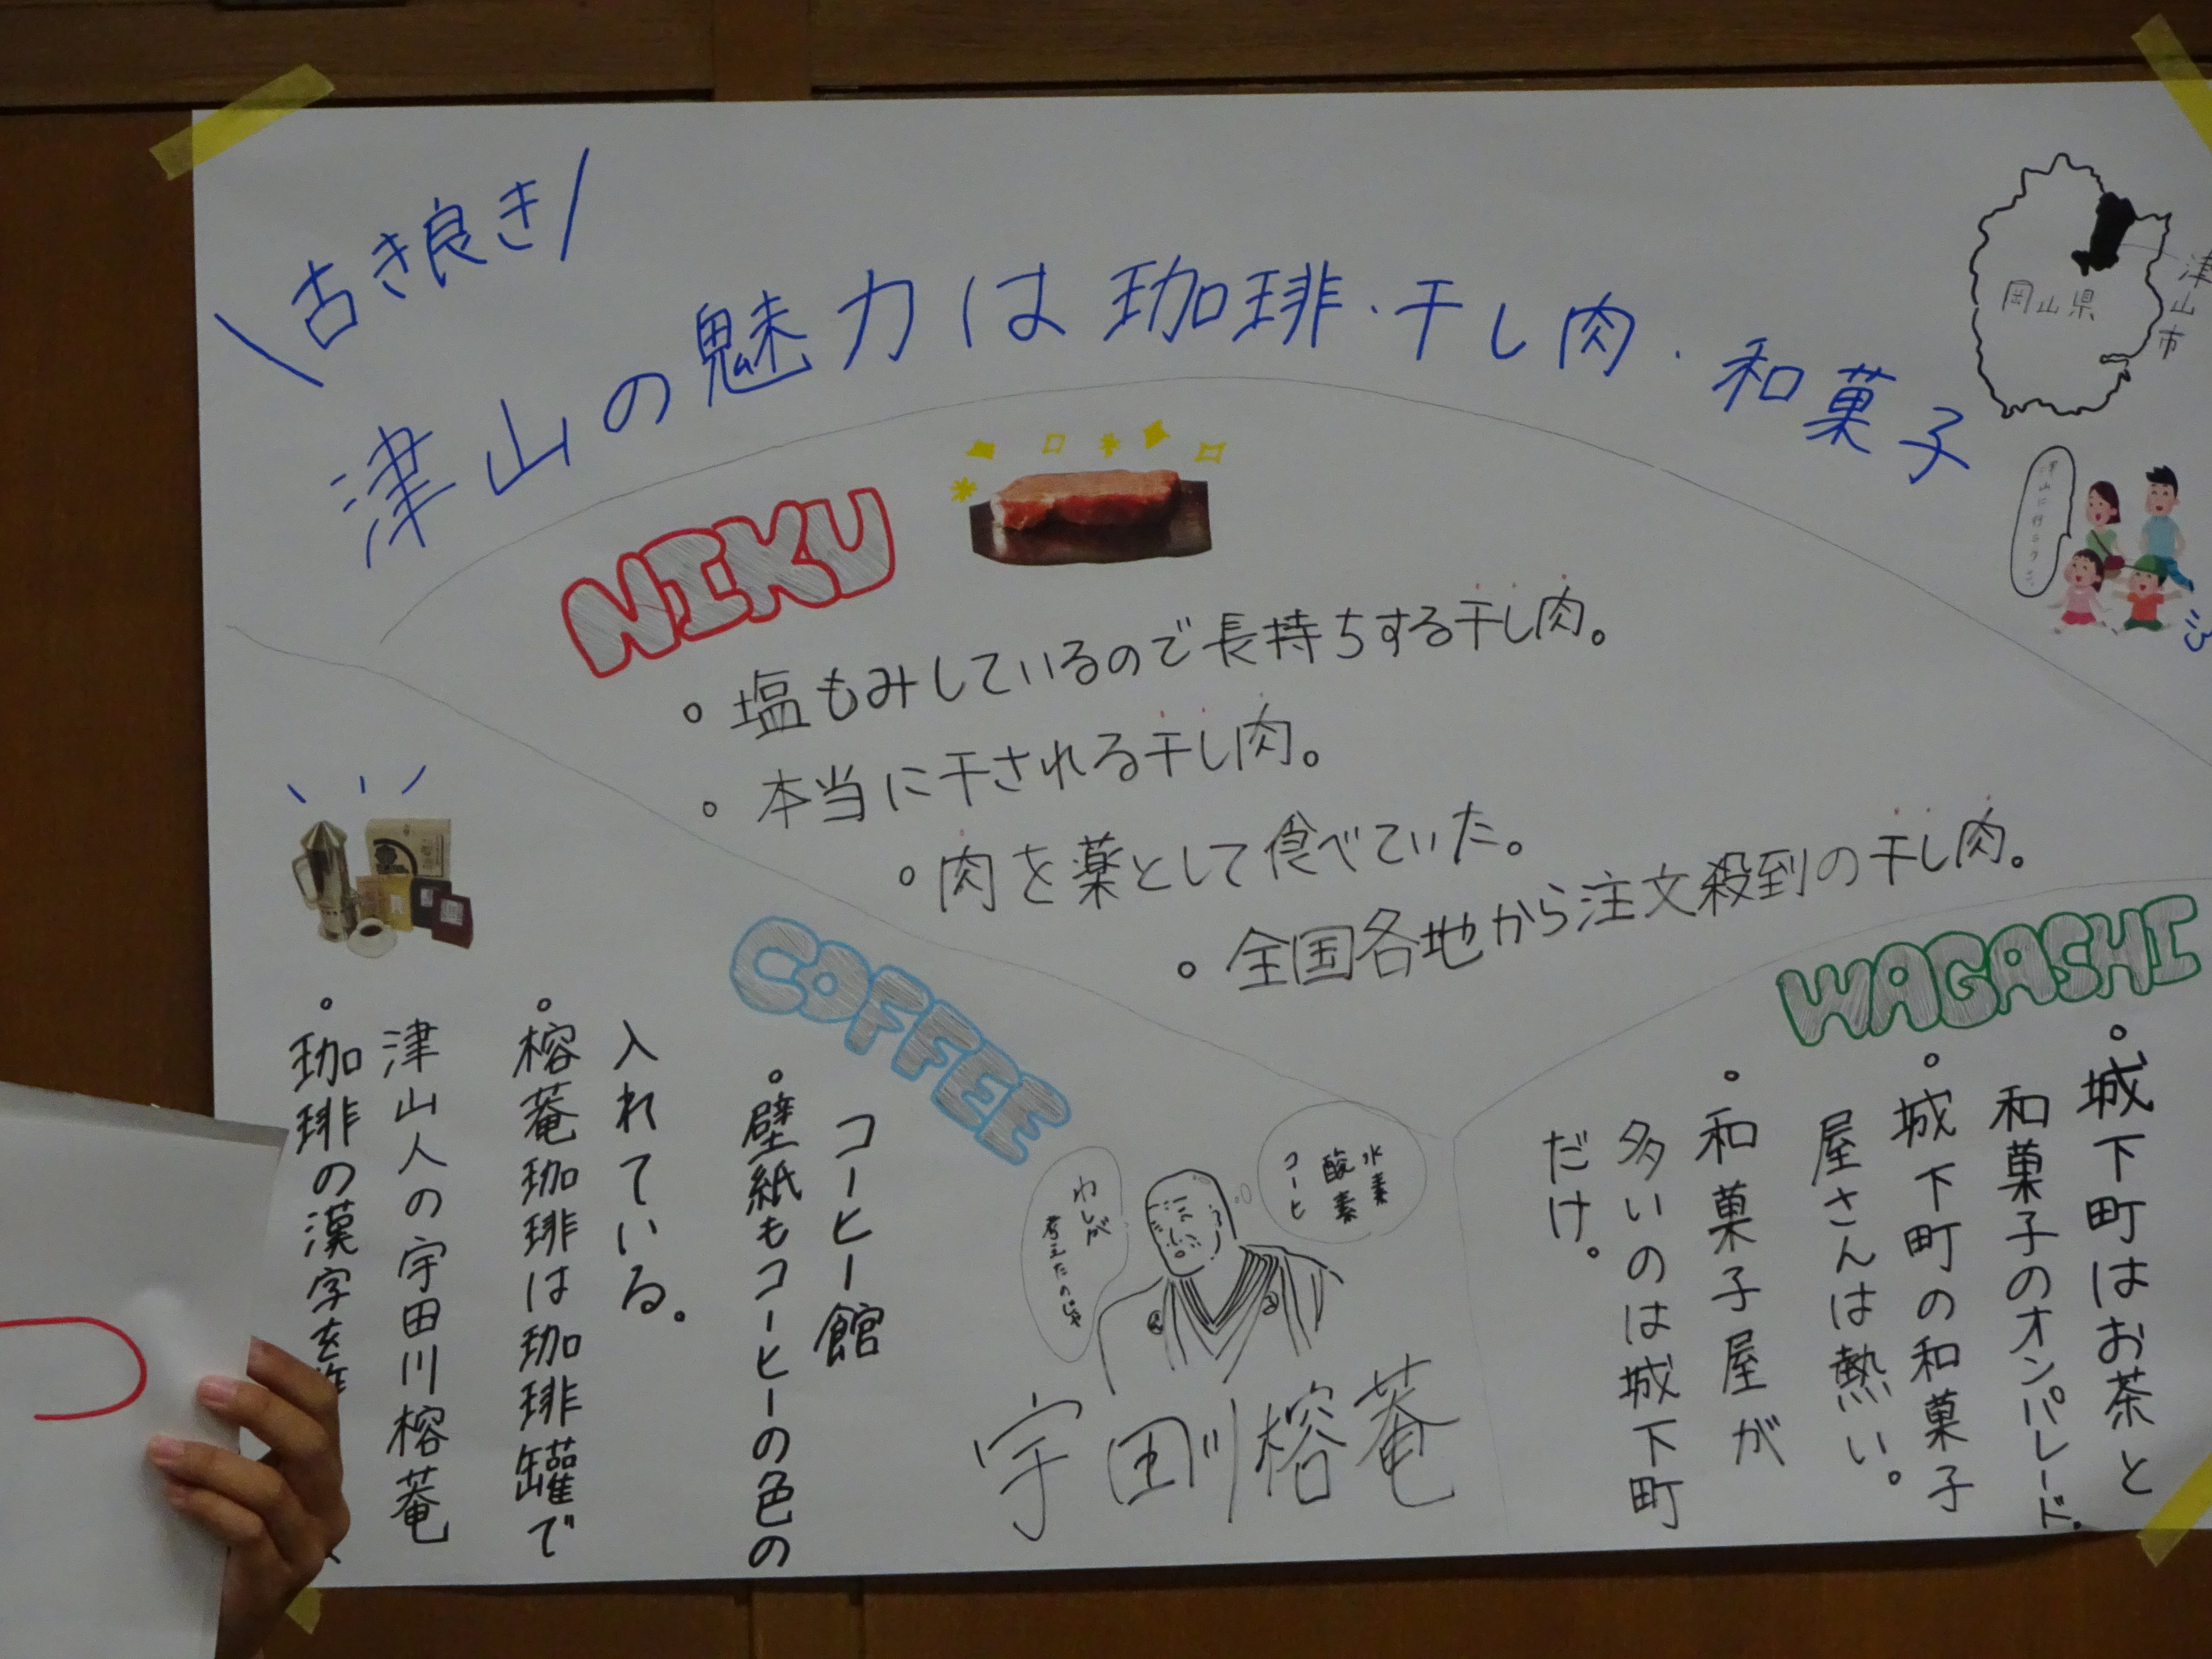 古き良き
津山の魅力は珈琲・干し肉・和菓子
岡山県
津山市
NIKU
。塩もみしているので長持ちする干し肉。
。本当に干される干し肉。
。肉を薬として食べていた。
。全国各地から注文殺到の干し肉。
COFFEE
コーヒー館
。壁紙もコーヒーの色の
入れている。
。榕菴珈琲は珈琲罐で
津山人の宇田川榕菴
。珈琲の漢字を
水素
酸素
コーヒ
わしが
考えたのじゃ
宇田川榕菴
WAGASHI
。城下町はお茶と
和菓子のオンパレード.
。城下町の和菓子
屋さんは熱い。
。和菓子屋が
多いのは城下町
だけ。